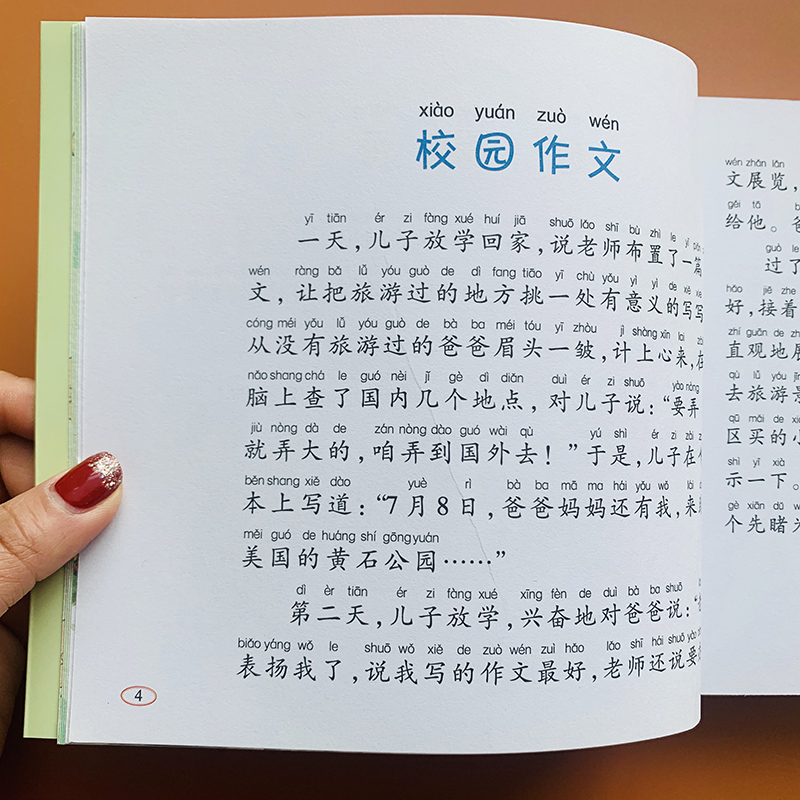 xiào yuán zuò wén
校园作文
yī tiān ér zi fàng xué huí jiā shuō lǎo shī bù zhì le yī piān
一天，儿子放学回家，说老师布置了一篇
wén ràng bǎ lǚ yóu guò de dì fang tiāo yī chù yǒu yì yì de xiě
文，让把旅游过的地方挑一处有意义的写写
cóng méi yǒu lǚ yóu guò de bà ba méi tóu yī zhòu jì shàng xīn lái zài
从没有旅游过的爸爸眉头一皱，计上心来，在
nǎo shang chá le guó nèi jǐ gè dì diǎn duì ér zi shuō yào nòng
脑上查了国内几个地点，对儿子说：“要弄
jiù nòng dà de zán nòng dào guó wài qù yú shì ér zi zài
就弄大的，咱弄到国外去！”于是，儿子在
běn shang xiě dào yuè rì bà ba mā ma hái yǒu wǒ lái
本上写道：“7月8日，爸爸妈妈还有我，来
měi guó de huáng shí gōng yuán
美国的黄石公园……”
dì èr tiān ér zi fàng xué xīng fèn de duì bà ba shuō
第二天，儿子放学，兴奋地对爸爸说：“
biǎo yáng wǒ le shuō wǒ xiě de zuò wén zuì hǎo lǎo shī hái shuō yào
表扬我了，说我写的作文最好，老师还说要
4
wén zhǎn lǎn
文展览，
gěi tā
给他。
guò le
过了
hǎo jiē zhe
好，接着
zhí guān de zhǎn
直观地展
qù lǚ yóu jǐng
去旅游景
qū mǎi de xiǎo
区买的小
shì yī xià
示一下。
gè xiān dǔ wéi
个先睹为